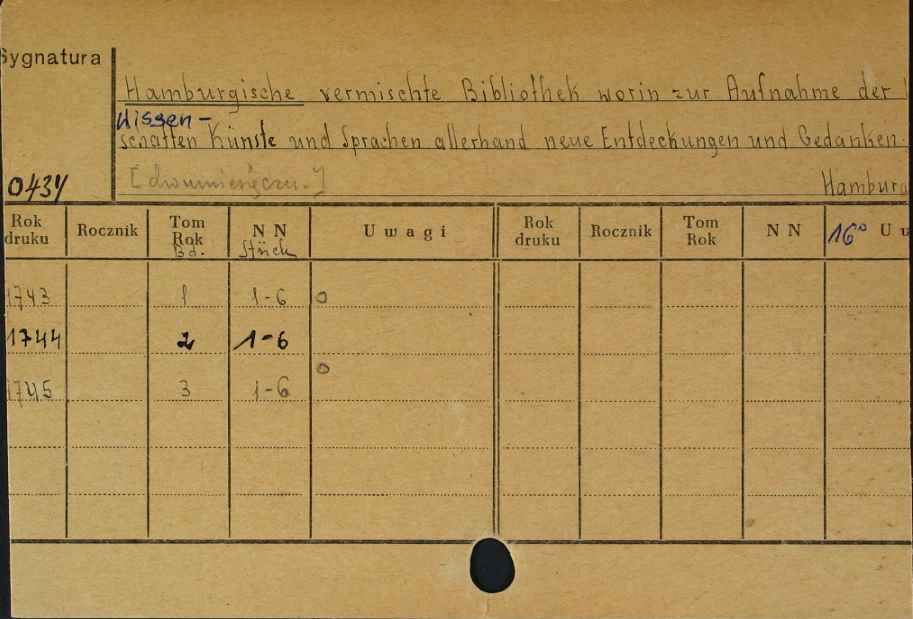 Sygnatura
Hamburgische vermischte Bibliothek worin zur Aufnahme der
Wissen-
schaften Künste und Sprachen allerhand neue Entdeckungen und Gedanken.
0434 [dwumiesięczn.] Hamburg
Rok druku Rocznik Tom Rok Bd. N N Stück Uwagi Rok druku Rocznik Tom Rok N N 16° Uw
1743 1 1-6 o
1744 2 1-6
o
1745 3 1-6